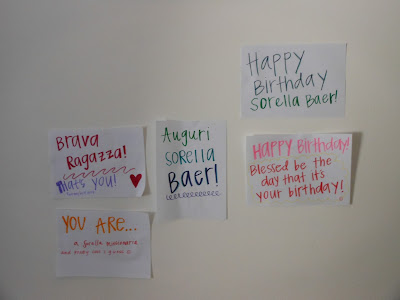 Happy
Birthday
Sorella Baer!
Brava
Ragazza!
that's you!
Auguri
SORELLA
BAER!
HAPPY Birthday!
Blessed be the
day that it's
your birthday!
YOU ARE...
A Sorella Missionaria